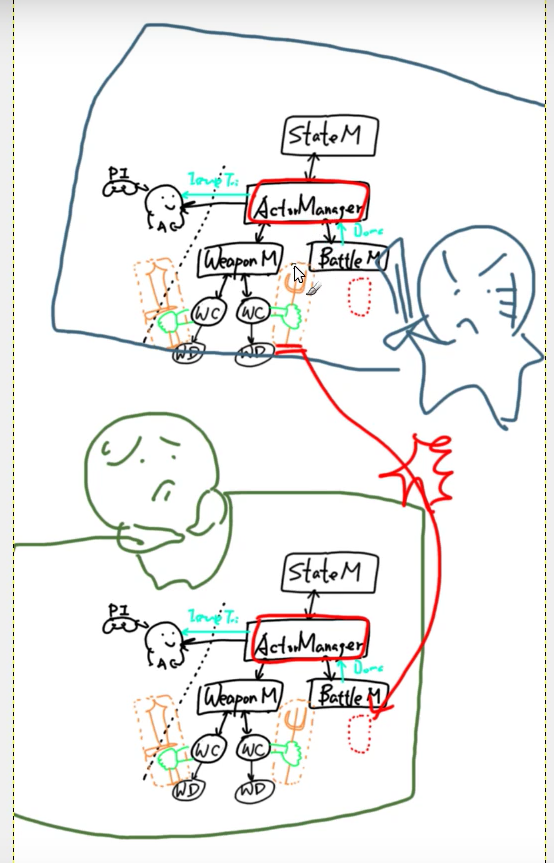 StateM
PI
ActorManager
AC
Weapon M
Battle M
WC
WC
WD
WD
StateM
PI
ActorManager
AC
Weapon M
Battle M
WC
WC
WD
WD